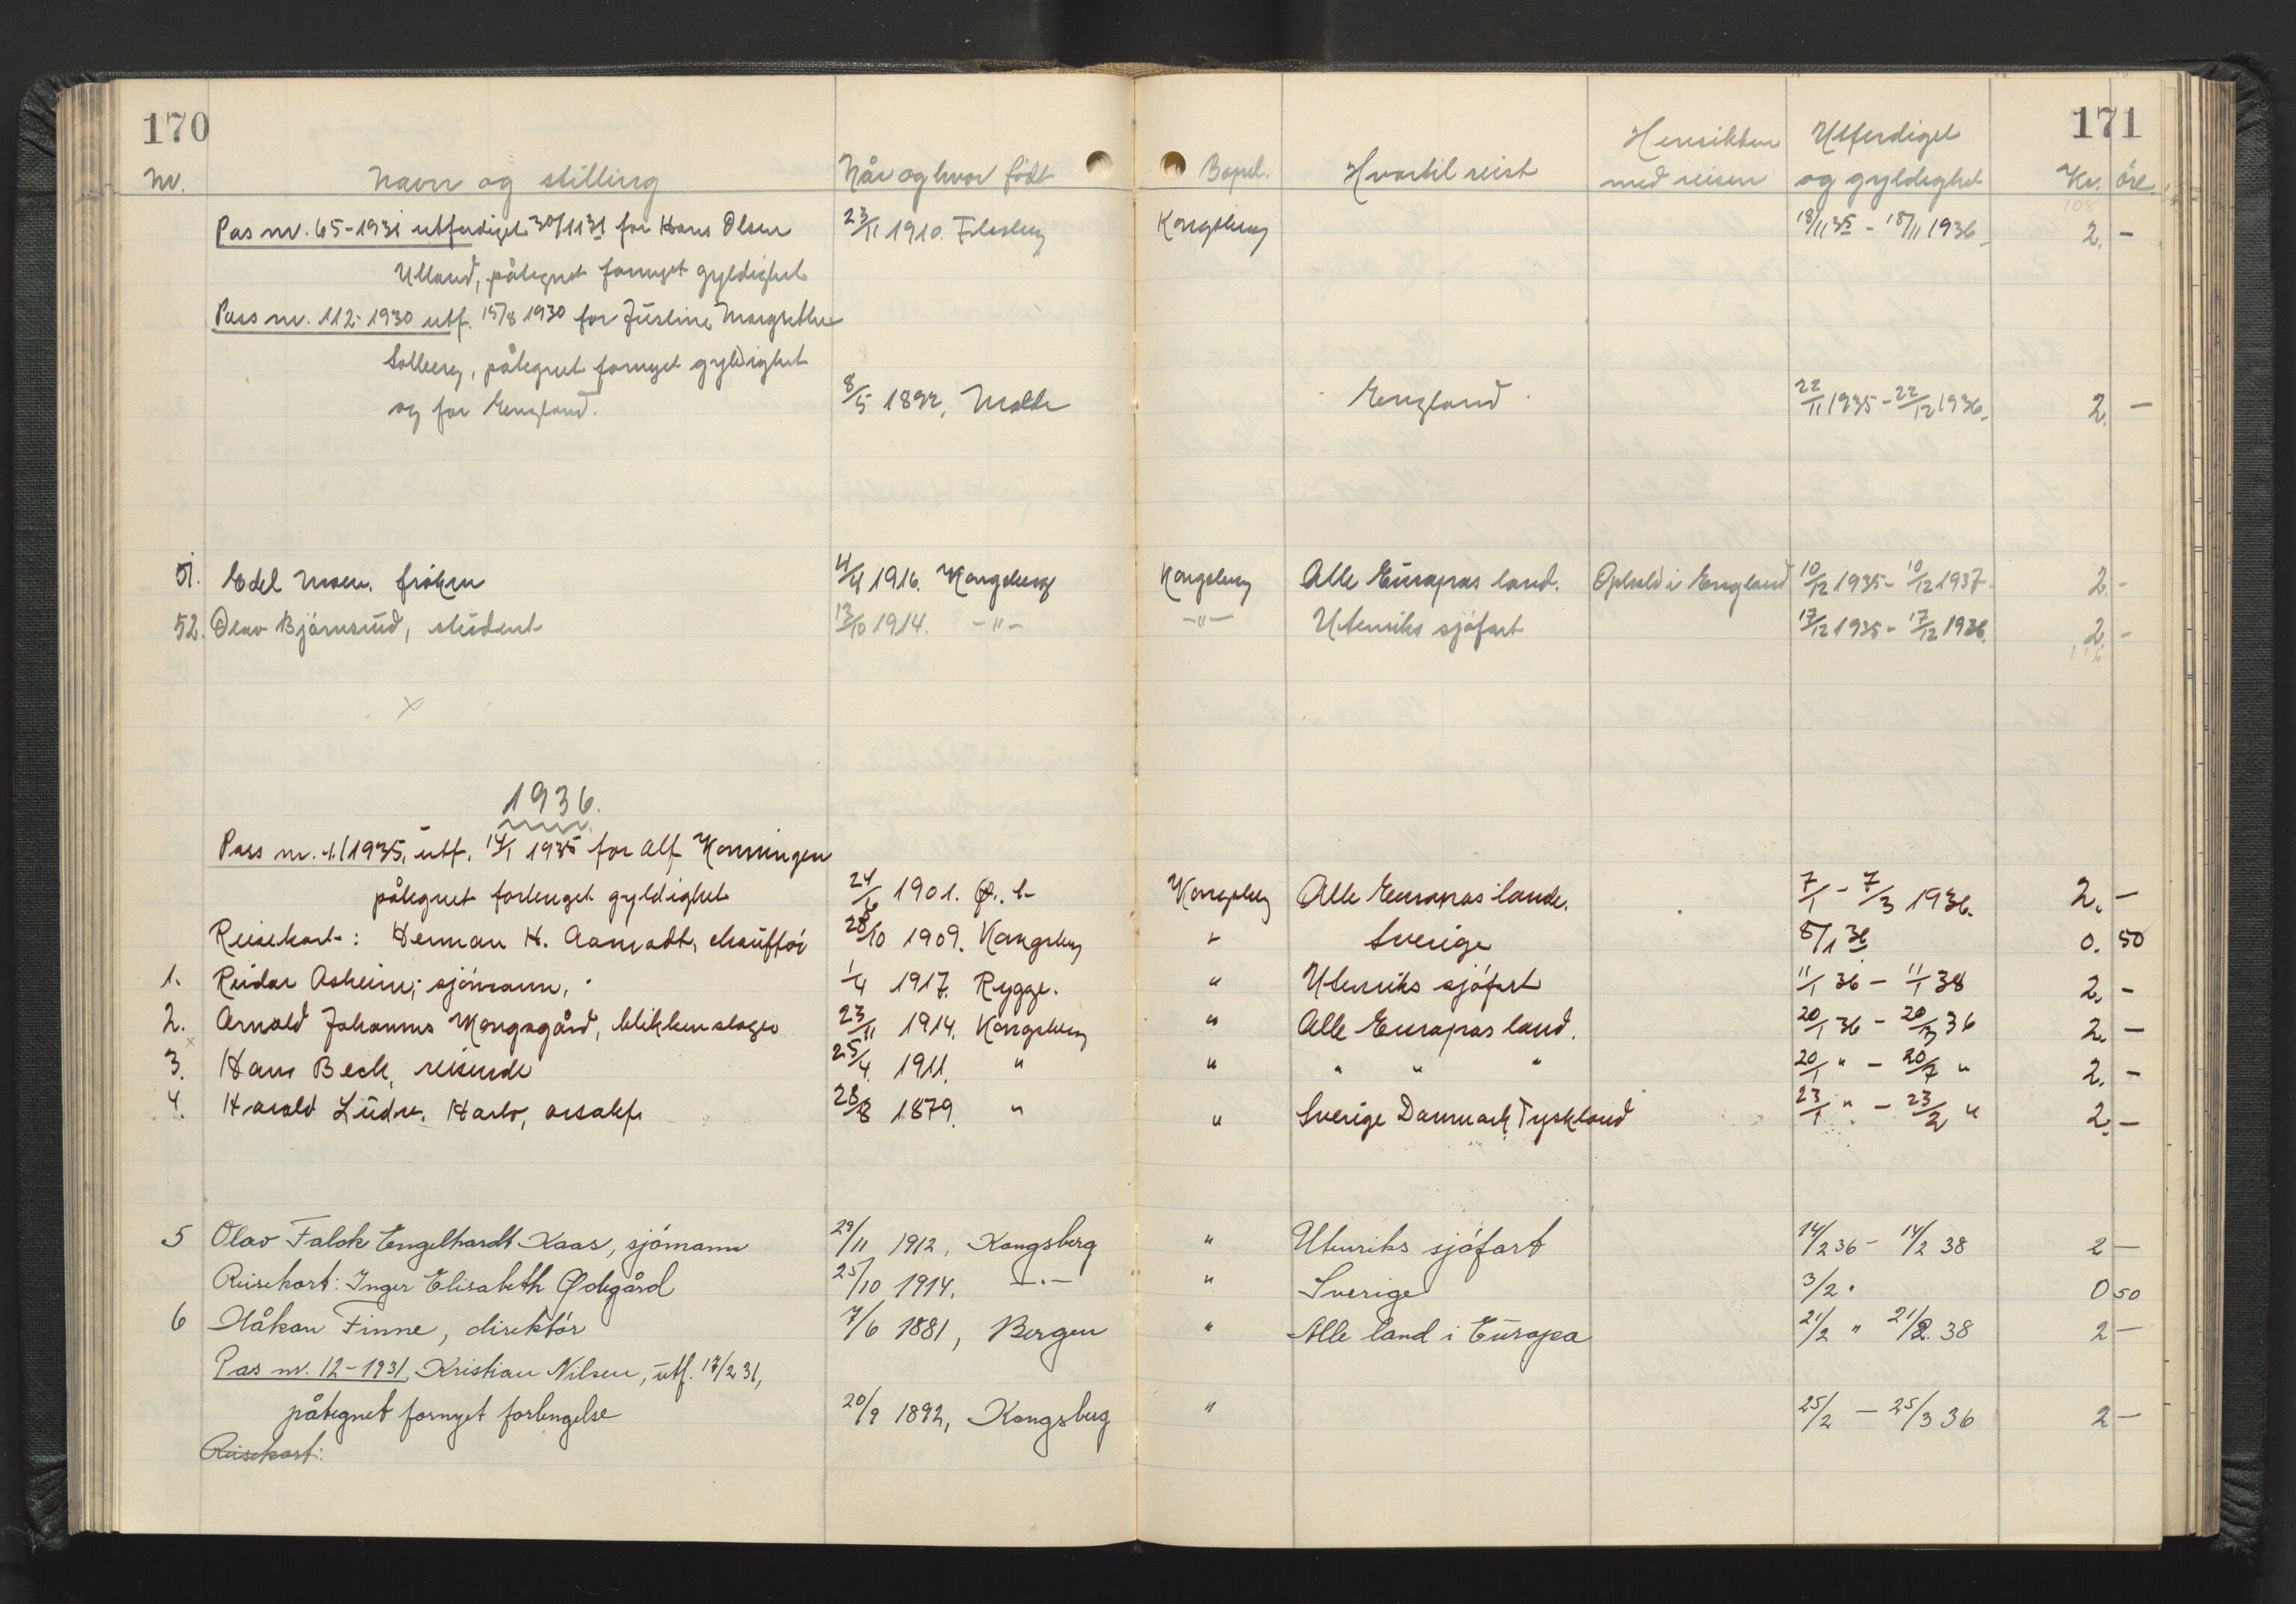 170
171
Nr. Navn og stilling Når og hvor født Bopel. Hvortil reist Hensikten med reisen Utferdiget og gyldighet Kr. öre
Pas nr. 65-1931 utferdiget 30/11 31 for Hans Olsen 23/11 1910. Flesberg Kongsberg 18/11 35 - 18/11 1936. 2. -
Ulland, påtegnet fornyet gyldighet
Pass nr. 112-1930 utf. 15/8 1930 for Justine Margrethe
Solberg, påtegnet fornyet gyldighet
og for England. 8/5 1892, Molde England 22/11 1935 - 22/12 1936. 2. -
51. Edel Moen, frøken 4/4 1916. Kongsberg Kongsberg Alle Europas land. Ophold i England 10/12 1935 - 10/12 1937. 2. -
52. Olav Bjørnsrud, student 13/10 1914. -"- -"- Utenriks sjøfart 17/12 1935 - 17/12 1936. 2. -
116
x
1936.
Pass nr. 1/1935, utf. 14/1 1935 for Alf Konningen
påtegnet forlenget gyldighet 24/6 1901. Kongsberg Alle Europas lande. 7/1 - 7/3 1936. 2. -
Reisekort: Herman H. Aamodt, chauffør 28/10 1909. Kongsberg " Sverige 8/1 36 0. 50
1. Reidar Asheim, sjömann. 1/4 1917. Rygge. " Utenriks sjøfart 11/1 36 - 11/1 38 2. -
2. Arnold Johannes Kongsgård, blikkenslager 23/11 1914. Kongsberg " Alle Europas land. 20/1 36 - 20/3 36 2. -
3. x Hans Beck, reisende 25/4 1911. " " " " " 20/1 " - 20/7 " 2. -
4. Harald Ludv. Harlo, 28/8 1879. " " Sverige Danmark, Tyskland 23/1 " - 23/2 " 2. -
5 Olav Falck Engelhardt Kaas, sjómann 29/11 1912, Kongsberg " Utenriks sjófart 14/2 36 - 14/2 38 2 -
Reisekort: Inger Elisabeth Ødegård 25/10 1914. -"- " Sverige 3/2 " 0 50
6 Håkon Finne, direktór 7/6 1881, Bergen " Alle land i Europa 21/2 " 21/2 38 2 -
Pas nr. 12-1931, Kristian Nilsen, utf. 17/2 31,
påtegnet fornyet forlengelse 20/9 1892, Kongsberg " 25/2 - 25/3 36 2 -
Reisekort: